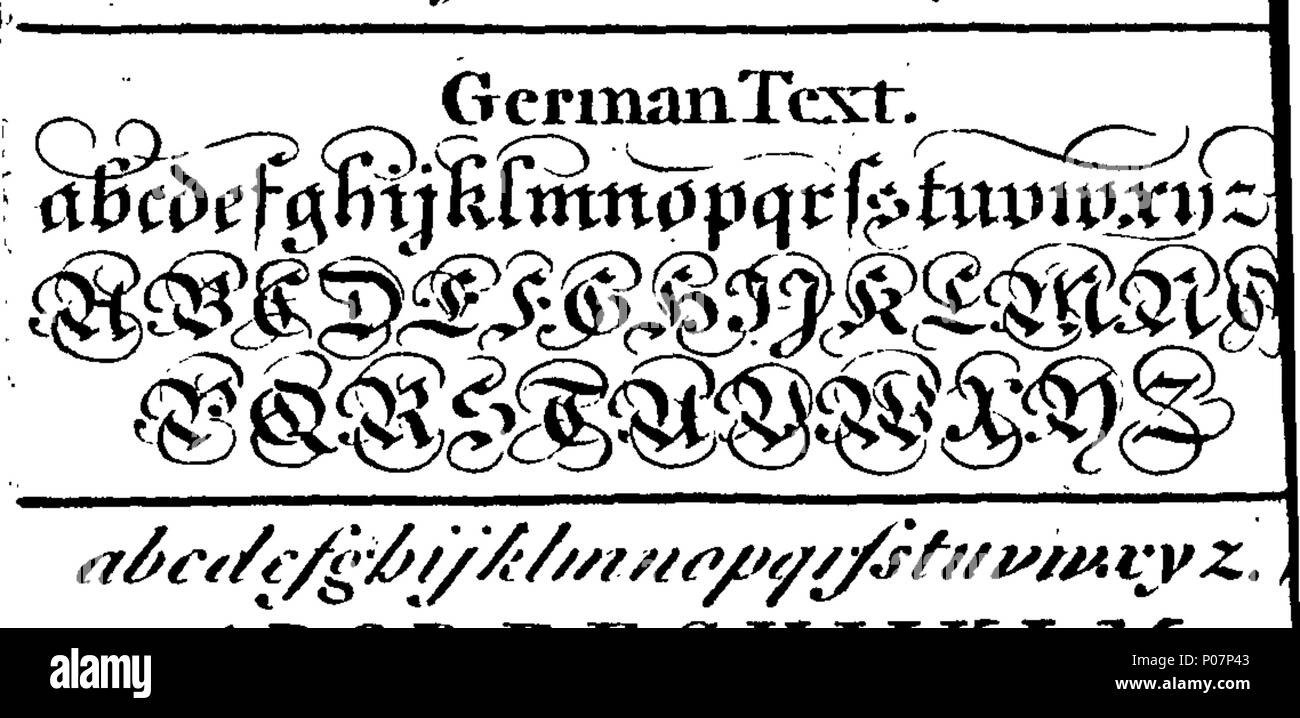 German Text.
abcdefghijklmnopqrſstuvwxyz
ABCDEFGHIJKLMNO
PQRSTUVWXYZ
abcdefghijklmnopqrſstuvwxyz.
alamy
Image ID: P07P43
www.alamy.com